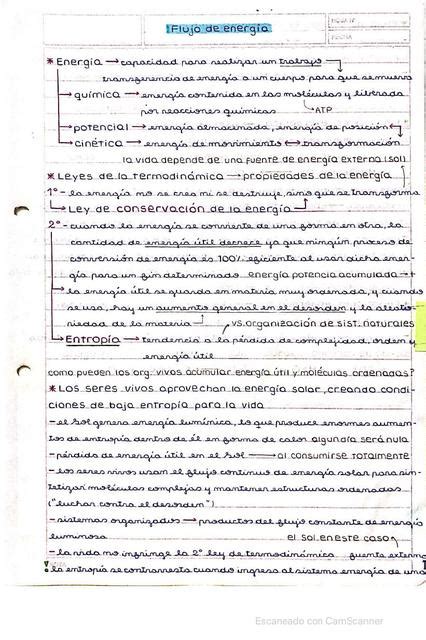 HOJA Nº
FECHA
¡Flujo de energía
* Energía → capacidad para realizar un trabajo
transferencia de energía a un cuerpo para que se mueva
→ química → energía contenida en las moléculas y liberada
por reacciones químicas → ATP
→ potencial → energía almacenada, energía de posición
→ cinética → energía de movimiento ↔ transformación
la vida depende de una fuente de energía externa (sol)
* Leyes de la termodinámica → propiedades de la energía
1º - la energía no se crea ni se destruye, sino que se transforma
→ Ley de conservación de la energía
2º - cuando la energía se convierte de una forma en otra, la
cantidad de energía útil decrece ya que ningún proceso de
conversión de energía es 100% eficiente al usar dicha ener-
gía para un fin determinado energía potencia acumulada
→ la energía útil se guarda en materia muy ordenada, y cuando
se usa, hay un aumento general en el desorden y la aleato-
riedad de la materia vs. organización de sist. naturales
→ Entropía → tendencia a la pérdida de complejidad, orden y
energía útil
como pueden los org. vivos acumular energía útil y moléculas ordenadas?
* Los seres vivos aprovechan la energía solar, creando condi-
ciones de baja entropía para la vida
- el sol genera energía lumínica, lo que produce enormes aumen-
tos de entropía dentro de él en forma de calor algun día será nula
- pérdida de energía útil en el sol → al consumirse totalmente
- los seres vivos usan el flujo continuo de energía solar para sin-
tetizar moléculas complejas y mantener estructuras ordenadas
("luchar contra el desorden")
- sistemas organizados → productos del flujo constante de energía
luminosa el sol en este caso
- la vida no infringe la 2º ley de termodinámica fuente externa
! la entropía se contrarresta cuando ingresa al sistema energía de una
Escaneado con CamScanner